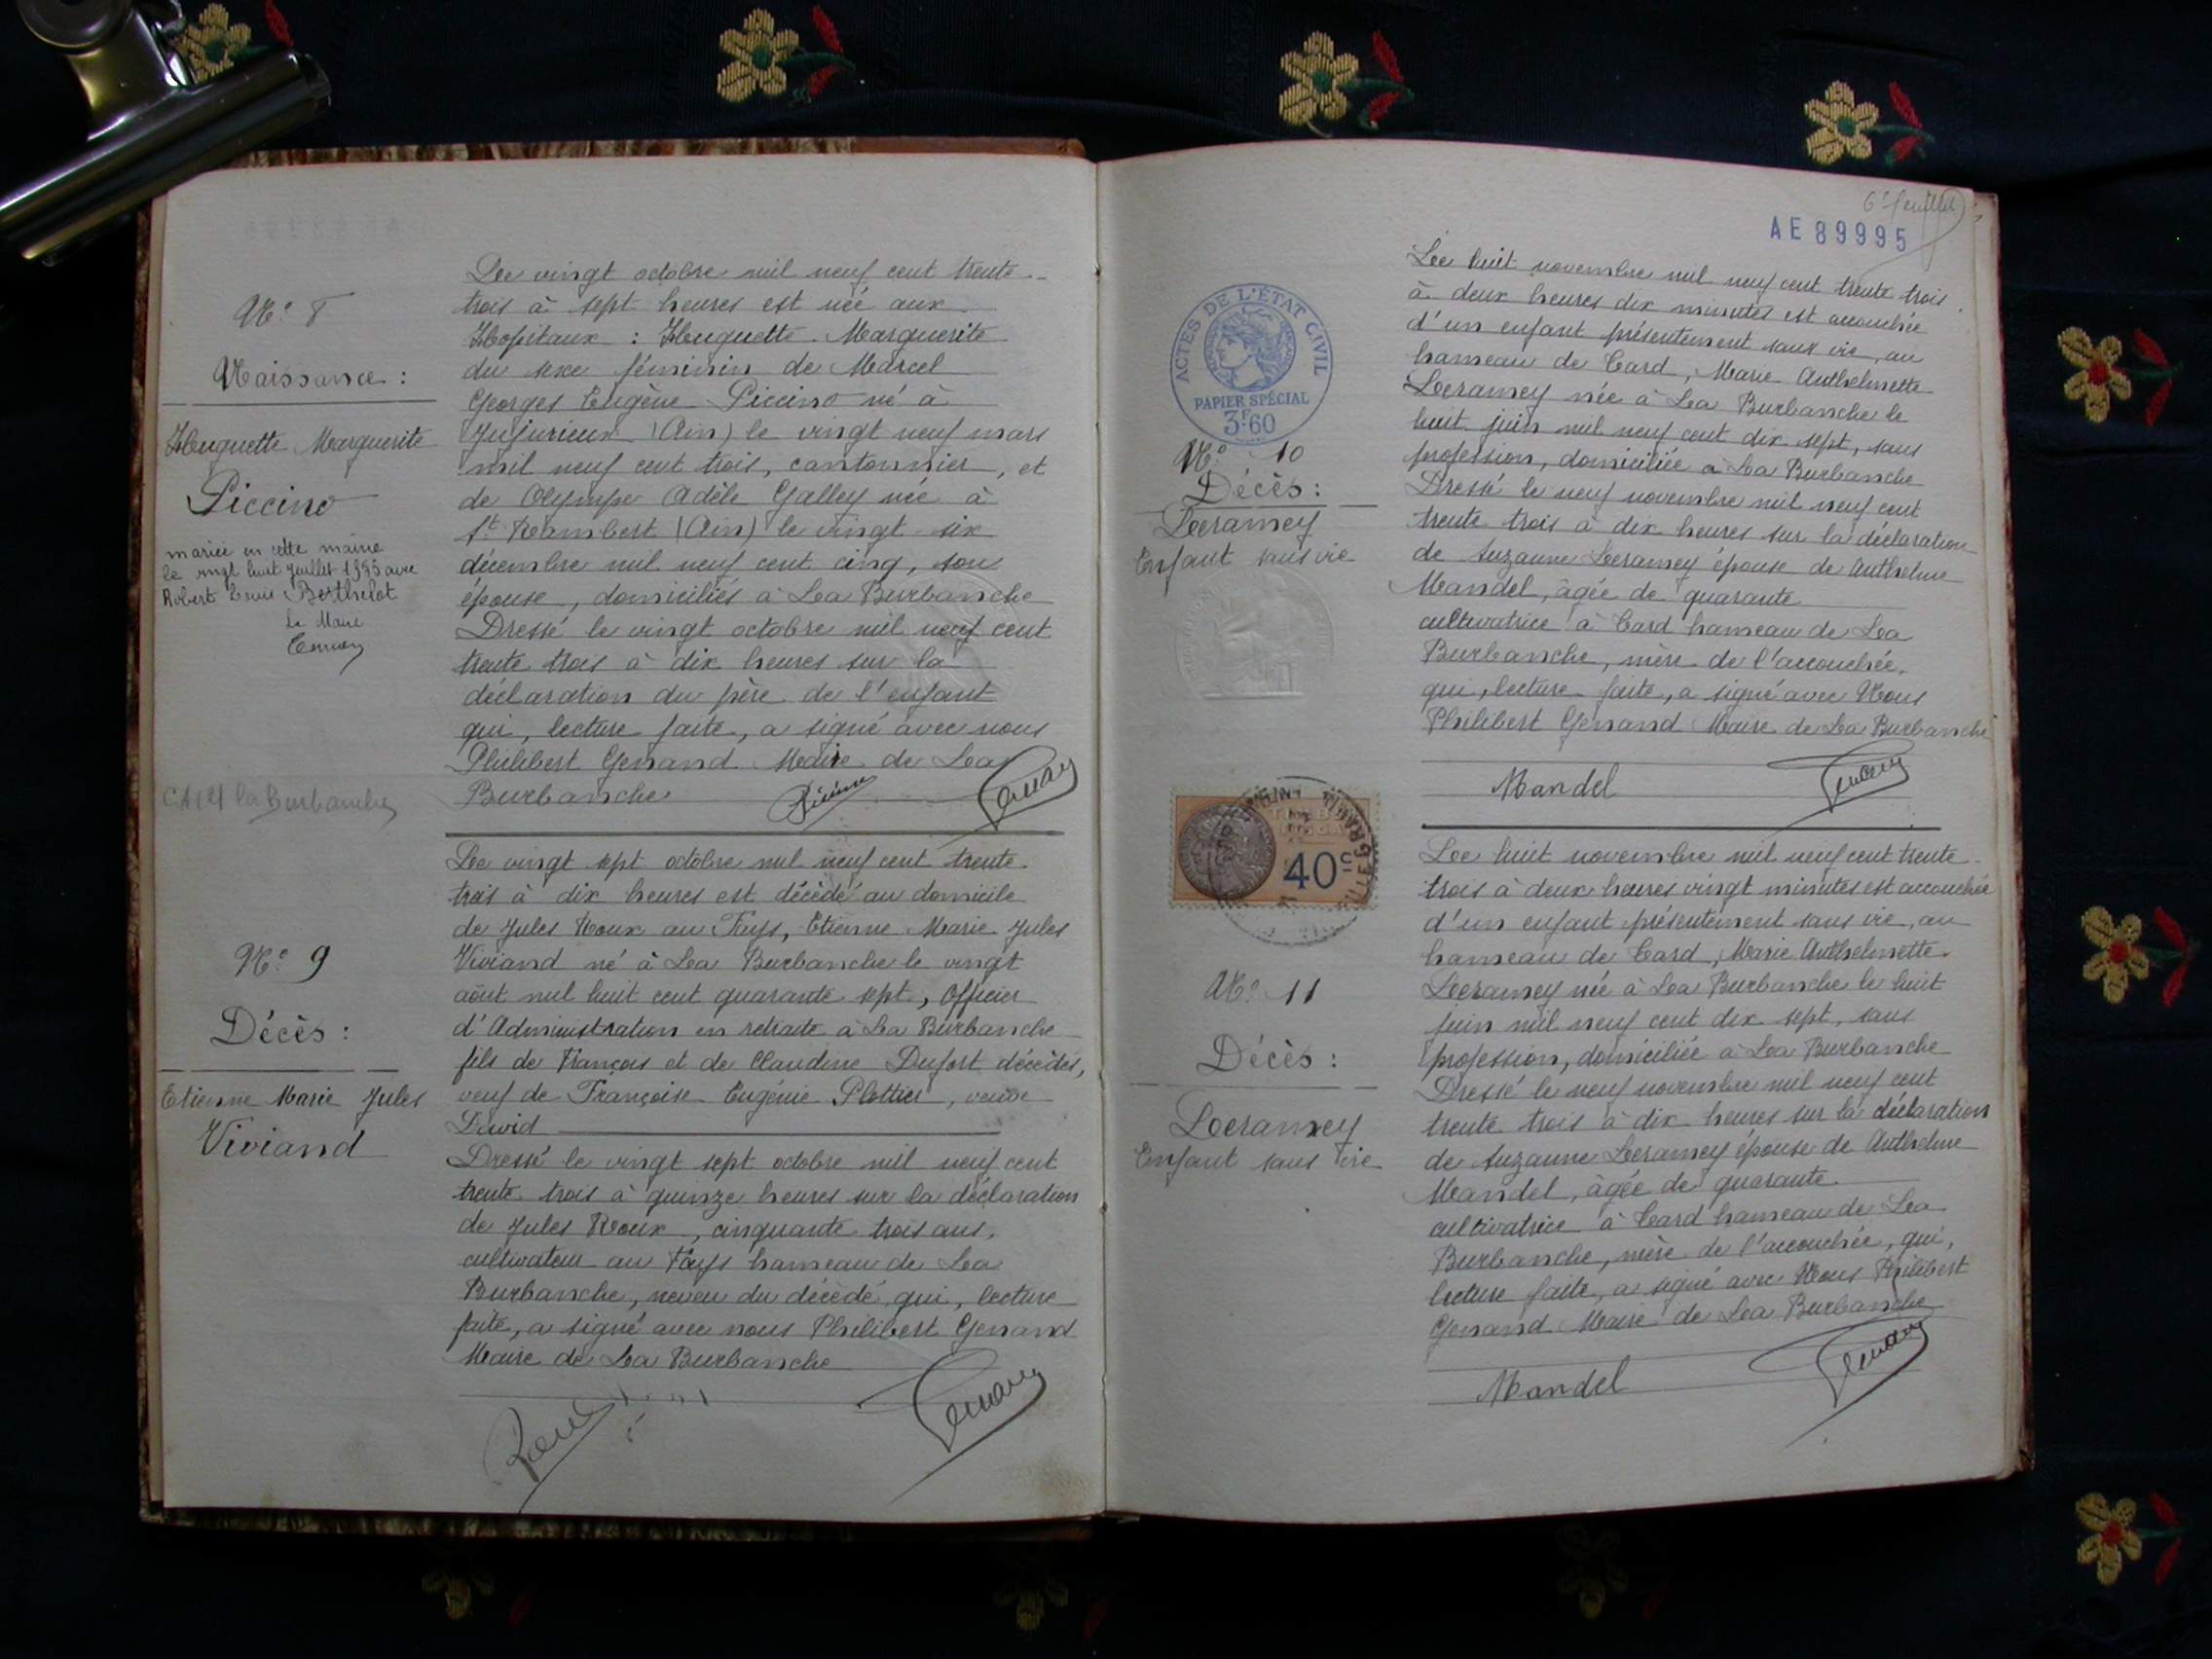 N° 8
Naissance :
Huguette Marguerite
Piccino
mariée en cette mairie
le vingt huit juillet 1955 avec
Robert Louis Berthelot
Le Maire
Le vingt octobre mil neuf cent trente-
trois à sept heures est née aux
Hopitaux : Huguette Marguerite
du sexe féminin de Marcel
Georges Eugène Piccino né à
Jujurieux (Ain) le vingt neuf mars
mil neuf cent trois, cantonnier, et
de Olympe Adèle Galley née à
St Rambert (Ain) le vingt six
décembre mil neuf cent cinq, son
épouse, domiciliés à La Burbanche
Dressé le vingt octobre mil neuf cent
trente trois à dix heures sur la
déclaration du père de l'enfant
qui, lecture faite, a signé avec nous
Philibert Genand Maire de La
Burbanche
Piccino Genand
la Burbanche
N° 9
Décès :
Etienne Marie Jules
Viviand
Le vingt sept octobre mil neuf cent trente-
trois à dix heures est décédé au domicile
de Jules Roux au Fays, Etienne Marie Jules
Viviand né à La Burbanche le vingt
août mil huit cent quarante sept, Officier
d'Administration en retraite à La Burbanche
fils de François et de Claudine Dufort décédés,
veuf de Françoise Eugénie Plottier, veuve
David
Dressé le vingt sept octobre mil neuf cent
trente trois à quinze heures sur la déclaration
de Jules Roux, cinquante trois ans,
cultivateur au Fays hameau de La
Burbanche, neveu du décédé qui, lecture
faite, a signé avec nous Philibert Genand
Maire de La Burbanche
Roux Genand
6e feuillet
AE 89995
ACTES DE L'ÉTAT CIVIL
PAPIER SPÉCIAL
3F60
N° 10
Décès :
Leramey
Enfant sans vie
Le huit novembre mil neuf cent trente trois
à deux heures dix minutes est accouchée
d'un enfant présentement sans vie, au
hameau de Card, Marie Anthelmette
Leramey née à La Burbanche le
huit juin mil neuf cent dix sept, sans
profession, domiciliée à La Burbanche
Dressé le neuf novembre mil neuf cent
trente trois à dix heures sur la déclaration
de Suzanne Leramey épouse de Anthelme
Mandel, âgée de quarante
cultivatrice à Card hameau de La
Burbanche, mère de l'accouchée,
qui, lecture faite, a signé avec Nous
Philibert Genand Maire de La Burbanche
Mandel Genand
40c
N° 11
Décès :
Leramey
Enfant sans vie
Le huit novembre mil neuf cent trente-
trois à deux heures vingt minutes est accouchée
d'un enfant présentement sans vie, au
hameau de Card, Marie Anthelmette
Leramey née à La Burbanche le huit
juin mil neuf cent dix sept, sans
profession, domiciliée à La Burbanche
Dressé le neuf novembre mil neuf cent
trente trois à dix heures sur la déclaration
de Suzanne Leramey épouse de Anthelme
Mandel, âgée de quarante
cultivatrice à Card hameau de La
Burbanche, mère de l'accouchée, qui,
lecture faite, a signé avec Nous Philibert
Genand Maire de La Burbanche
Mandel Genand